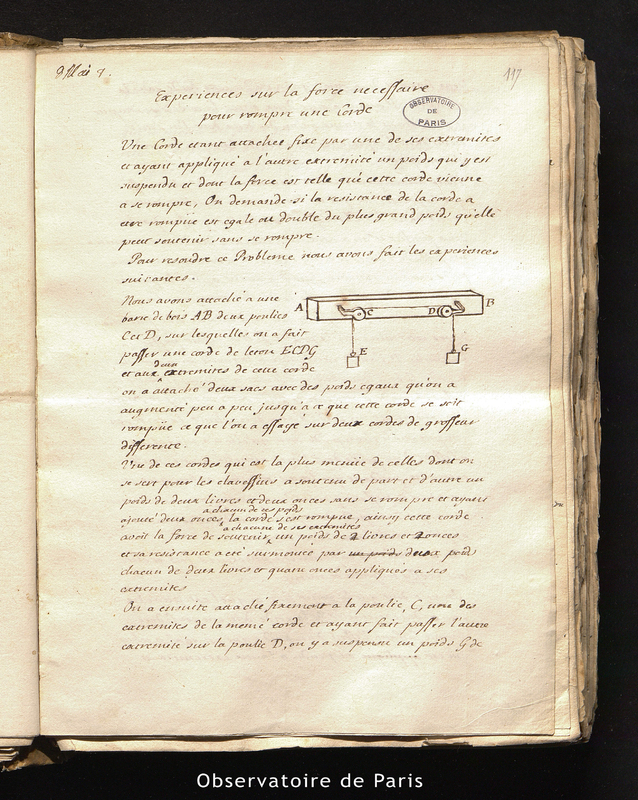 9 Mai 7.
117
Experiences sur la force necessaire
pour rompre une Corde
OBSERVATOIRE
DE
PARIS
Une Corde etant attachée fixe par une de ses extremites
et ayant appliqué a l'autre extremité un poids qui y est
suspendu et dont la force est telle que cette corde vienne
a se rompre, On demande si la resistance de la corde a
etre rompüe est egale ou double du plus grand poids qu'elle
peut soutenir sans se rompre.
Pour resoudre ce Probleme nous avons fait les experiences
suivantes.
Nous avons attaché a une
barre de bois AB deux poulies
C et D, sur lesquelles on a fait
passer une corde de leton ECDG
et aux deux extremites de cette corde
on a attaché deux sacs avec des poids egaux qu'on a
augmenté peu a peu jusqu'a ce que cette corde se soit
rompüe ce que l'on a essayé sur deux cordes de grosseur
differente.
A
B
C
D
E
G
Une de ces cordes qui est la plus menüe de celles dont on
se sert pour les clavessins a soutenu de part et d'autre un
poids de deux livres et deux onces sans se rompre et ayant
a chacun de ces poids
ajouté deux onces la corde s'est rompüe, ainsy cette corde
a chacune de ses extremités
avoit la force de soutenir un poids de 2 livres et 2 onces
et sa resistance a été surmontée par un poids deux poids
chacun de deux livres et quatre onces appliqués a ses
extremités
On a ensuite attaché fixement a la poulie C, une des
extremites de la meme corde et ayant fait passer l'autre
extremité sur la poulie D, on y a suspendu un poids G de
Observatoire de Paris